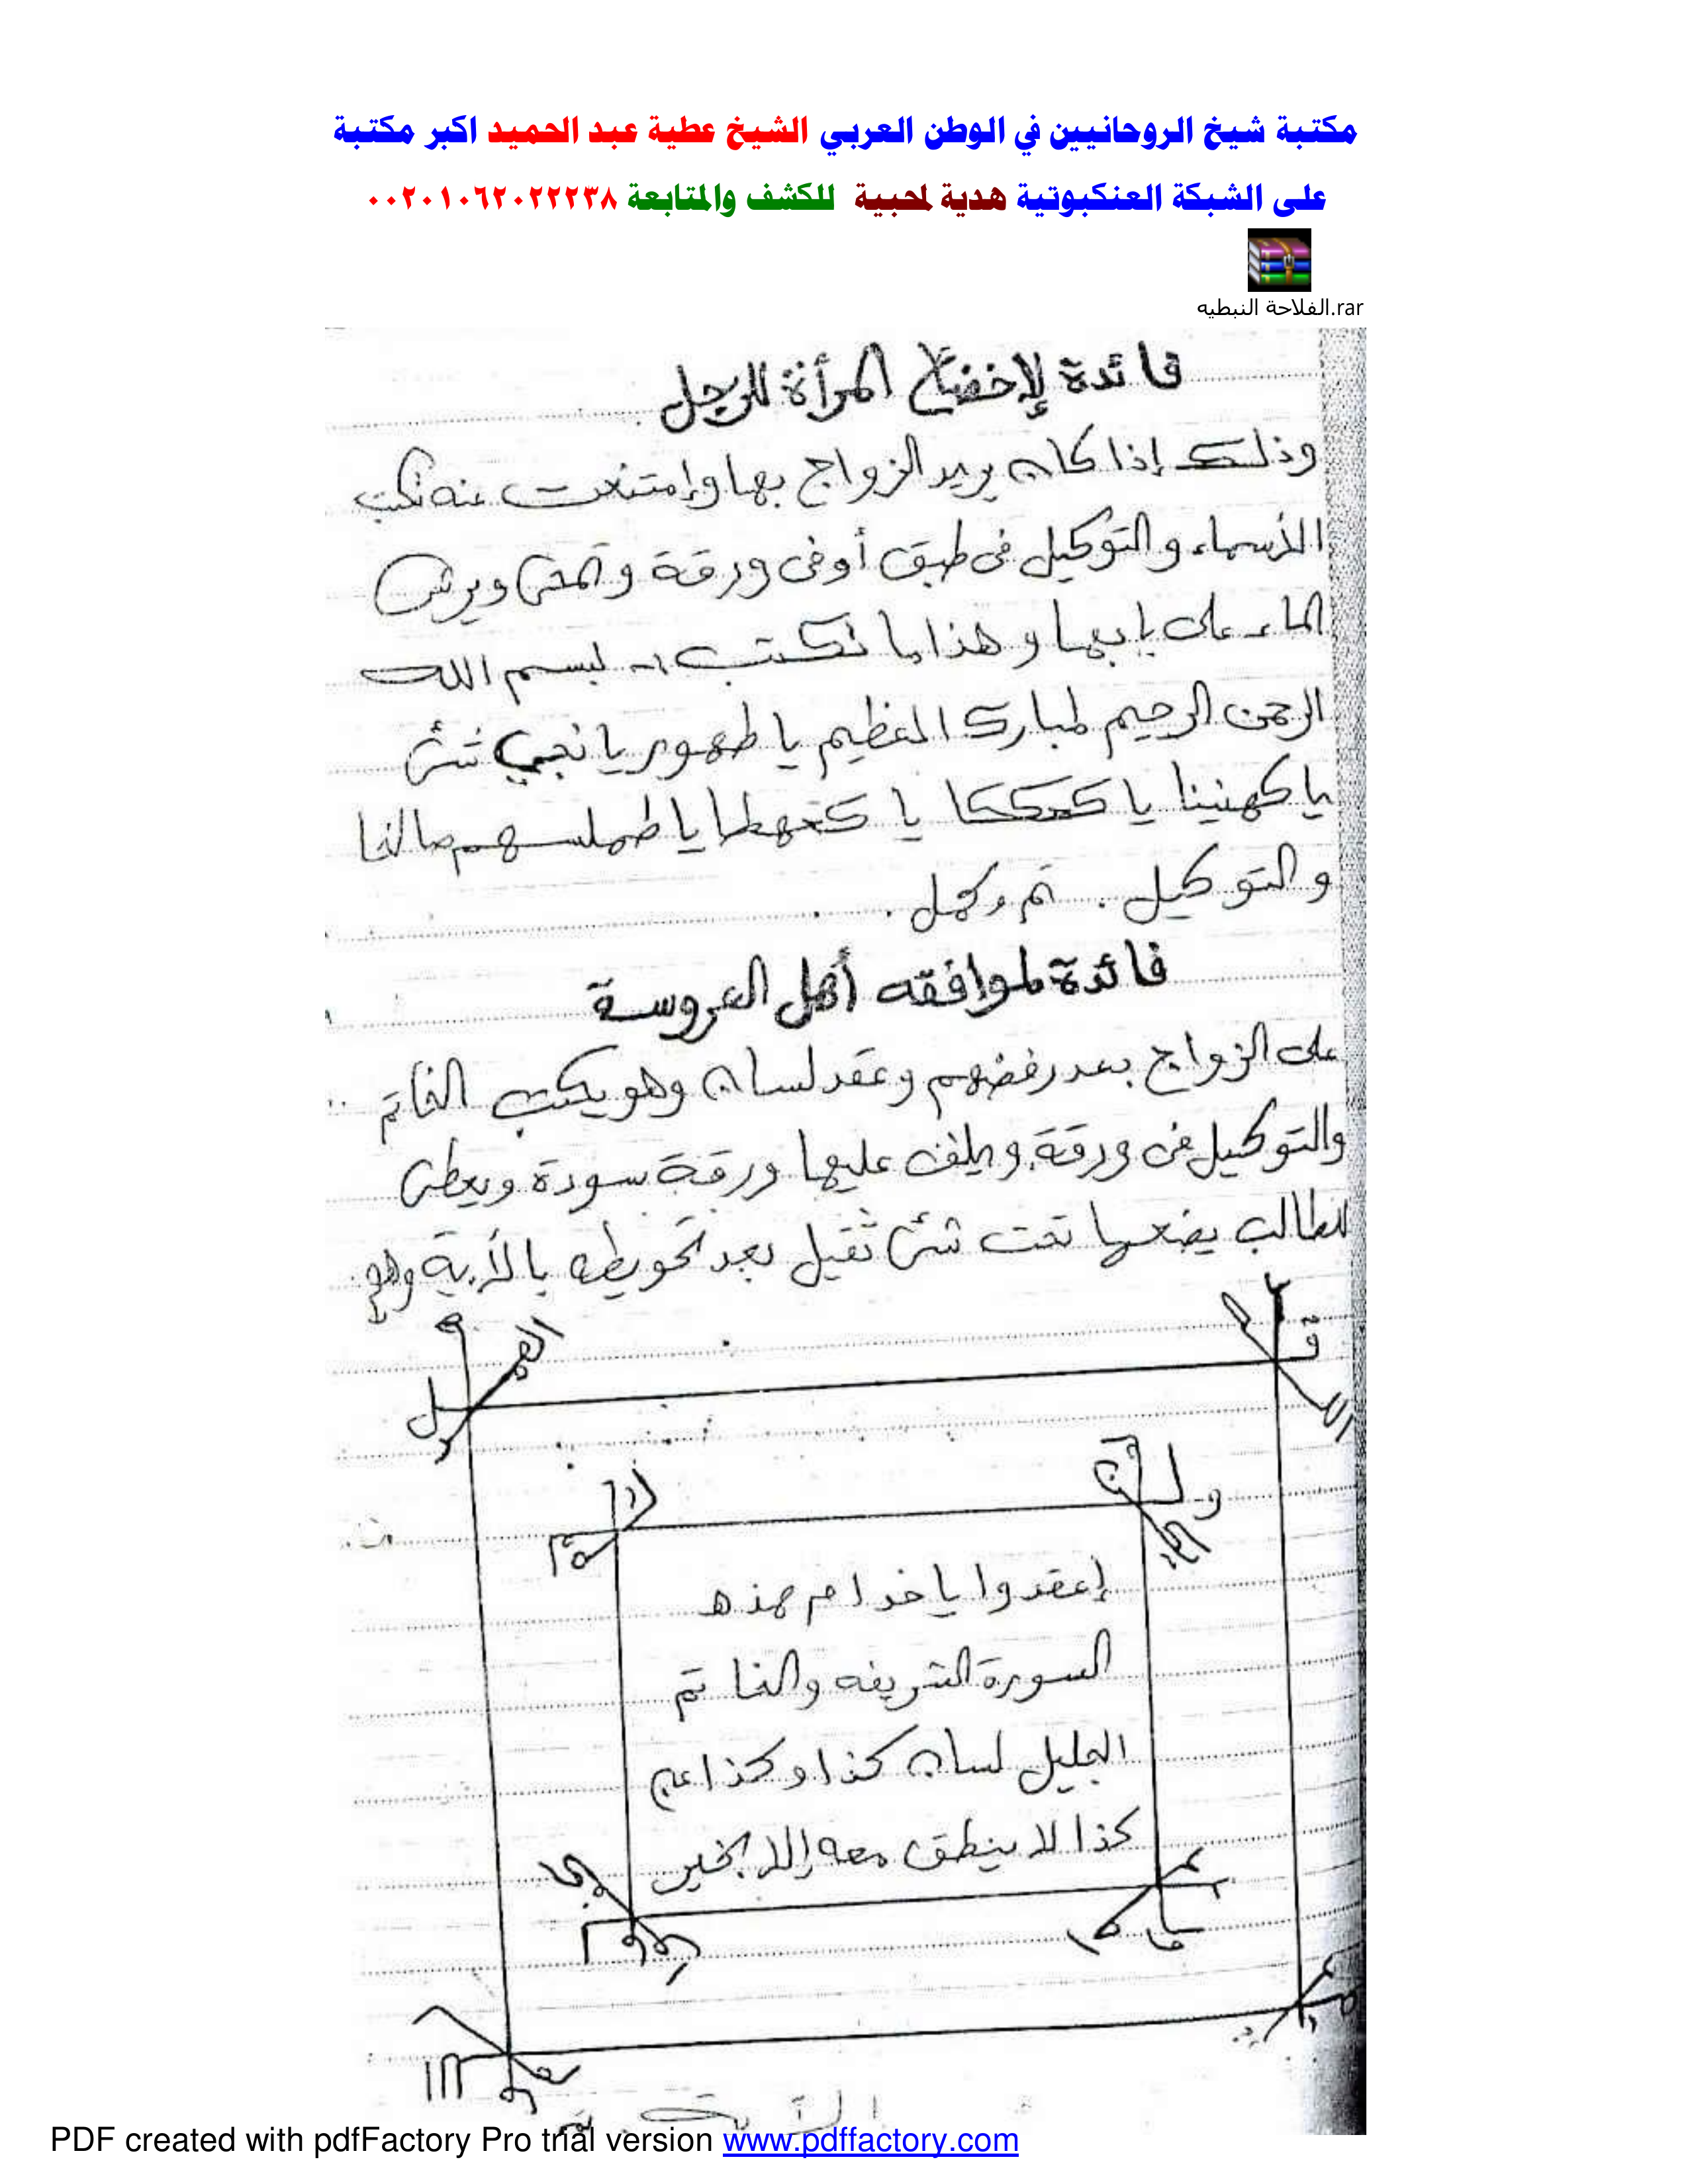 مكتبة شيخ الروحانيين في الوطن العربي الشيخ عطية عبد الحميد اكبر مكتبة
على الشبكة العنكبوتية هدية لمحبية للكشف والمتابعة ٠٠٢٠١٠٦٢٠٢٢٢٣٨
الفلاحة النبطيه.rar
فائدة لإخضاع المرأة للرجل
وذلك إذا كان يريد الزواج بها وإمتنعت عنه تكتب
الأسماء والتوكيل فى طبق أو فى ورقة وتمحى ويرش
الماء على بابها وهذا ما تكتب :- بسم الله
الرحمن الرحيم المبارك العظيم يا طهور يا
يا كهنينا يا يا يا
والتوكيل . تم وكمل .
فائدة لموافقه أهل العروسة
على الزواج بعد رفضهم وعقد لسان وهو يكتب الخاتم
والتوكيل فى ورقة ويلف عليها ورقة سودة ويعطى
للطالب يضعها تحت شئ ثقيل بعد تحويطه بالأية وهو
إعقدوا يا خدام هذه
السورة الشريفه والخاتم
الجليل لسان كذا وكذا عن
كذا لا ينطق معه إلا بخير
PDF created with pdfFactory Pro trial version www.pdffactory.com